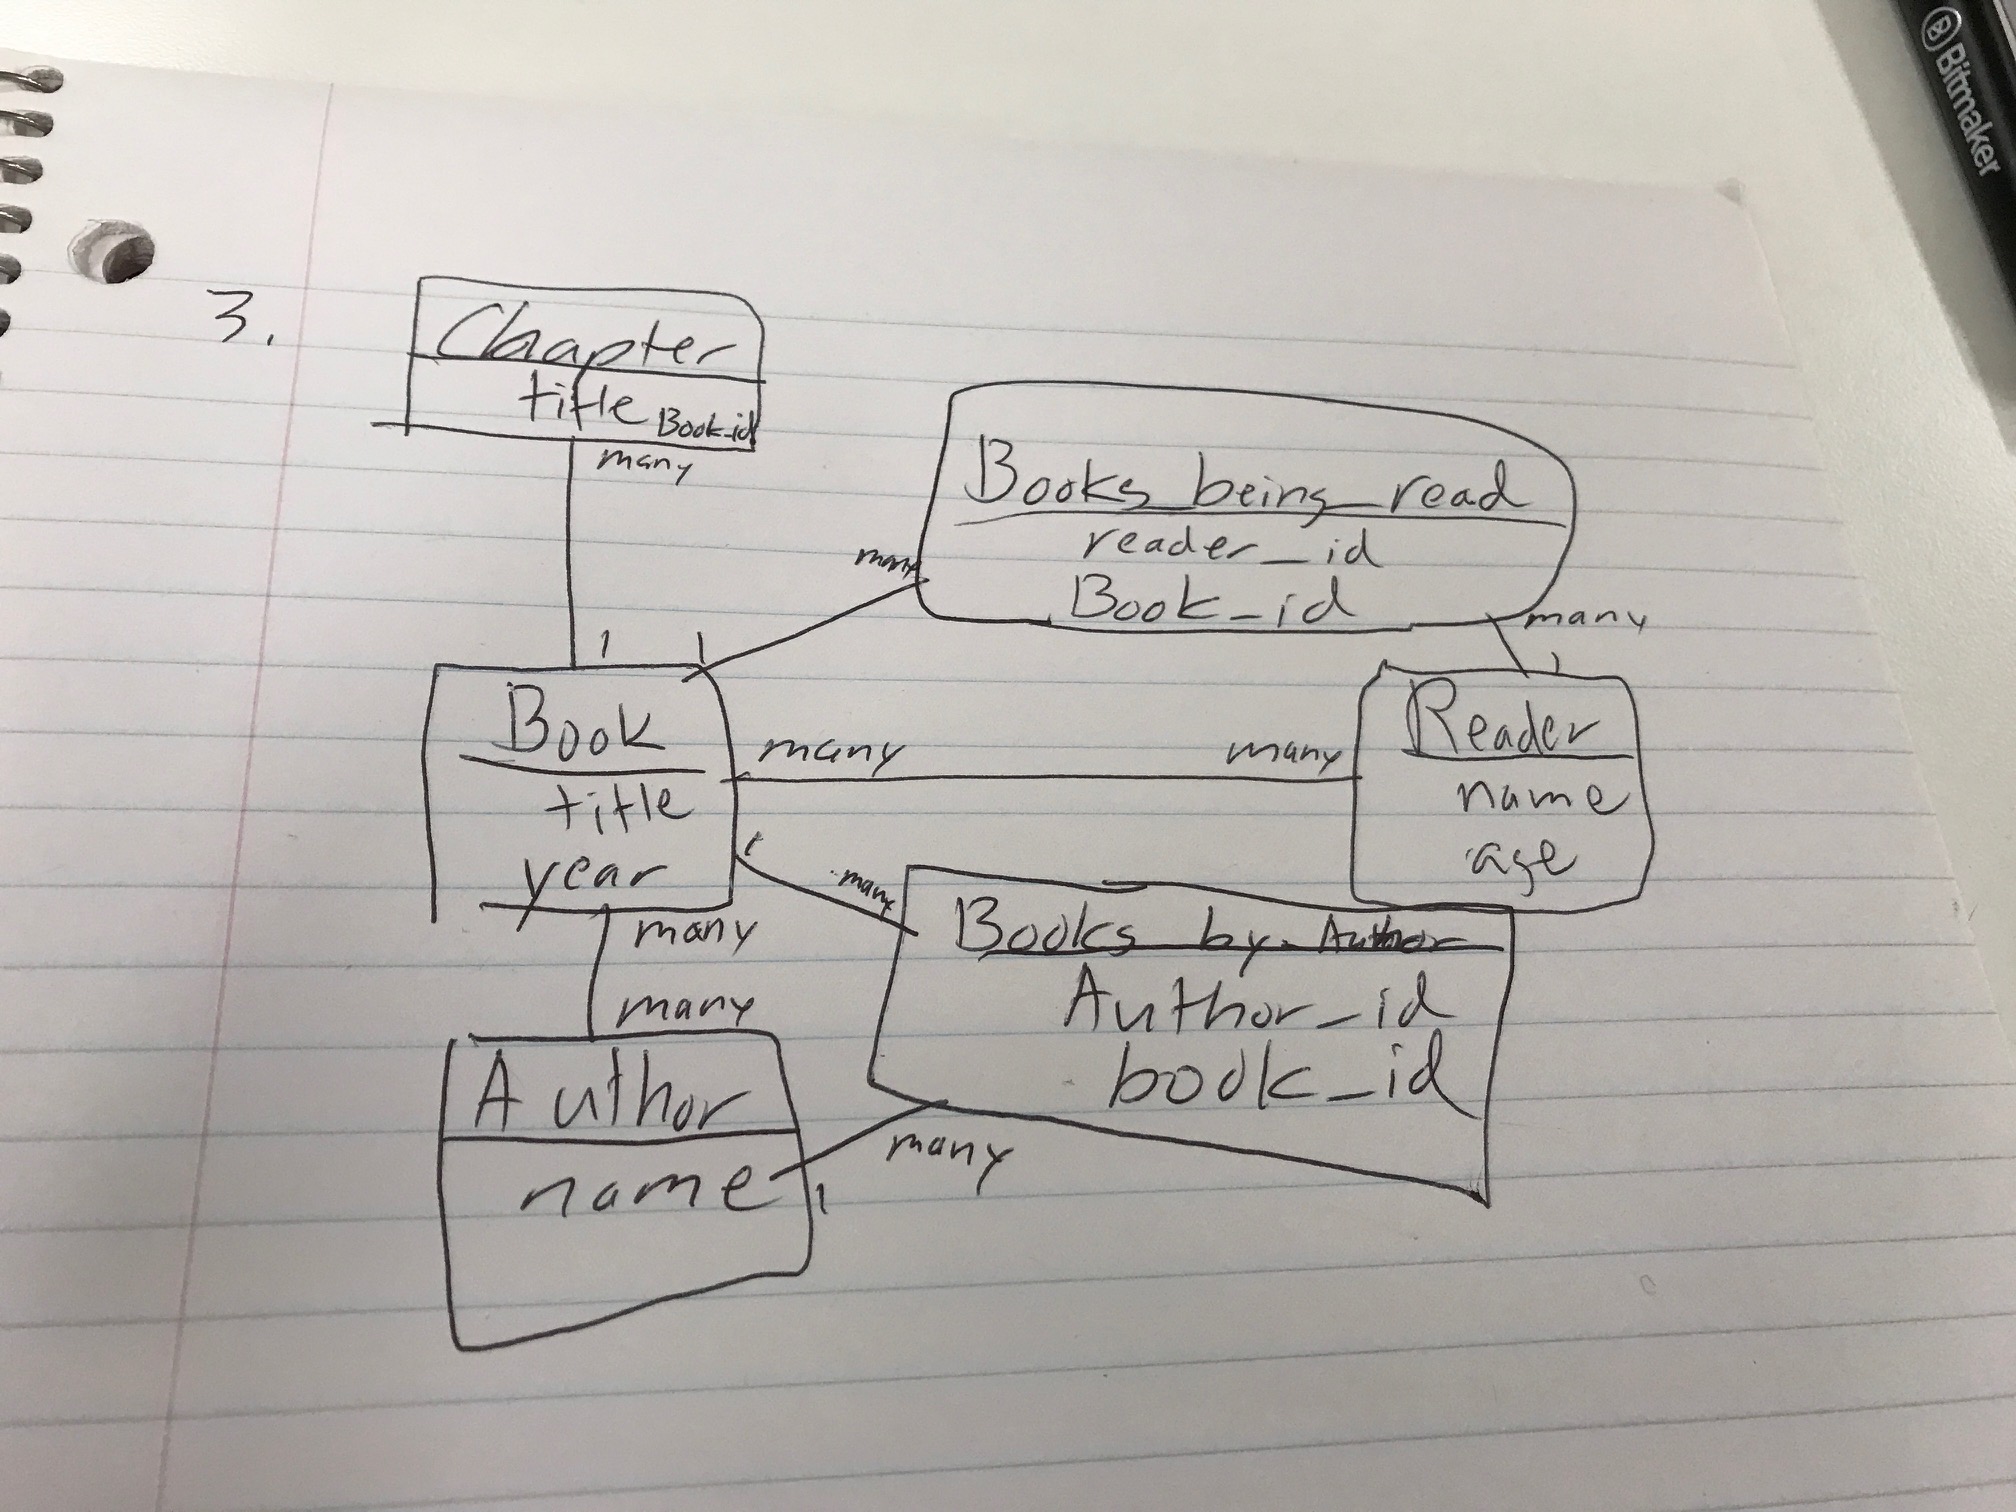 Bitmaker
3.
Chapter
title Book_id
many
Books_being_read
reader_id
Book_id
many
many
1
1
1
Book
title
year
many
many
Reader
name
age
1
many
Books by Author
Author_id
book_id
many
many
Author
name
many
1